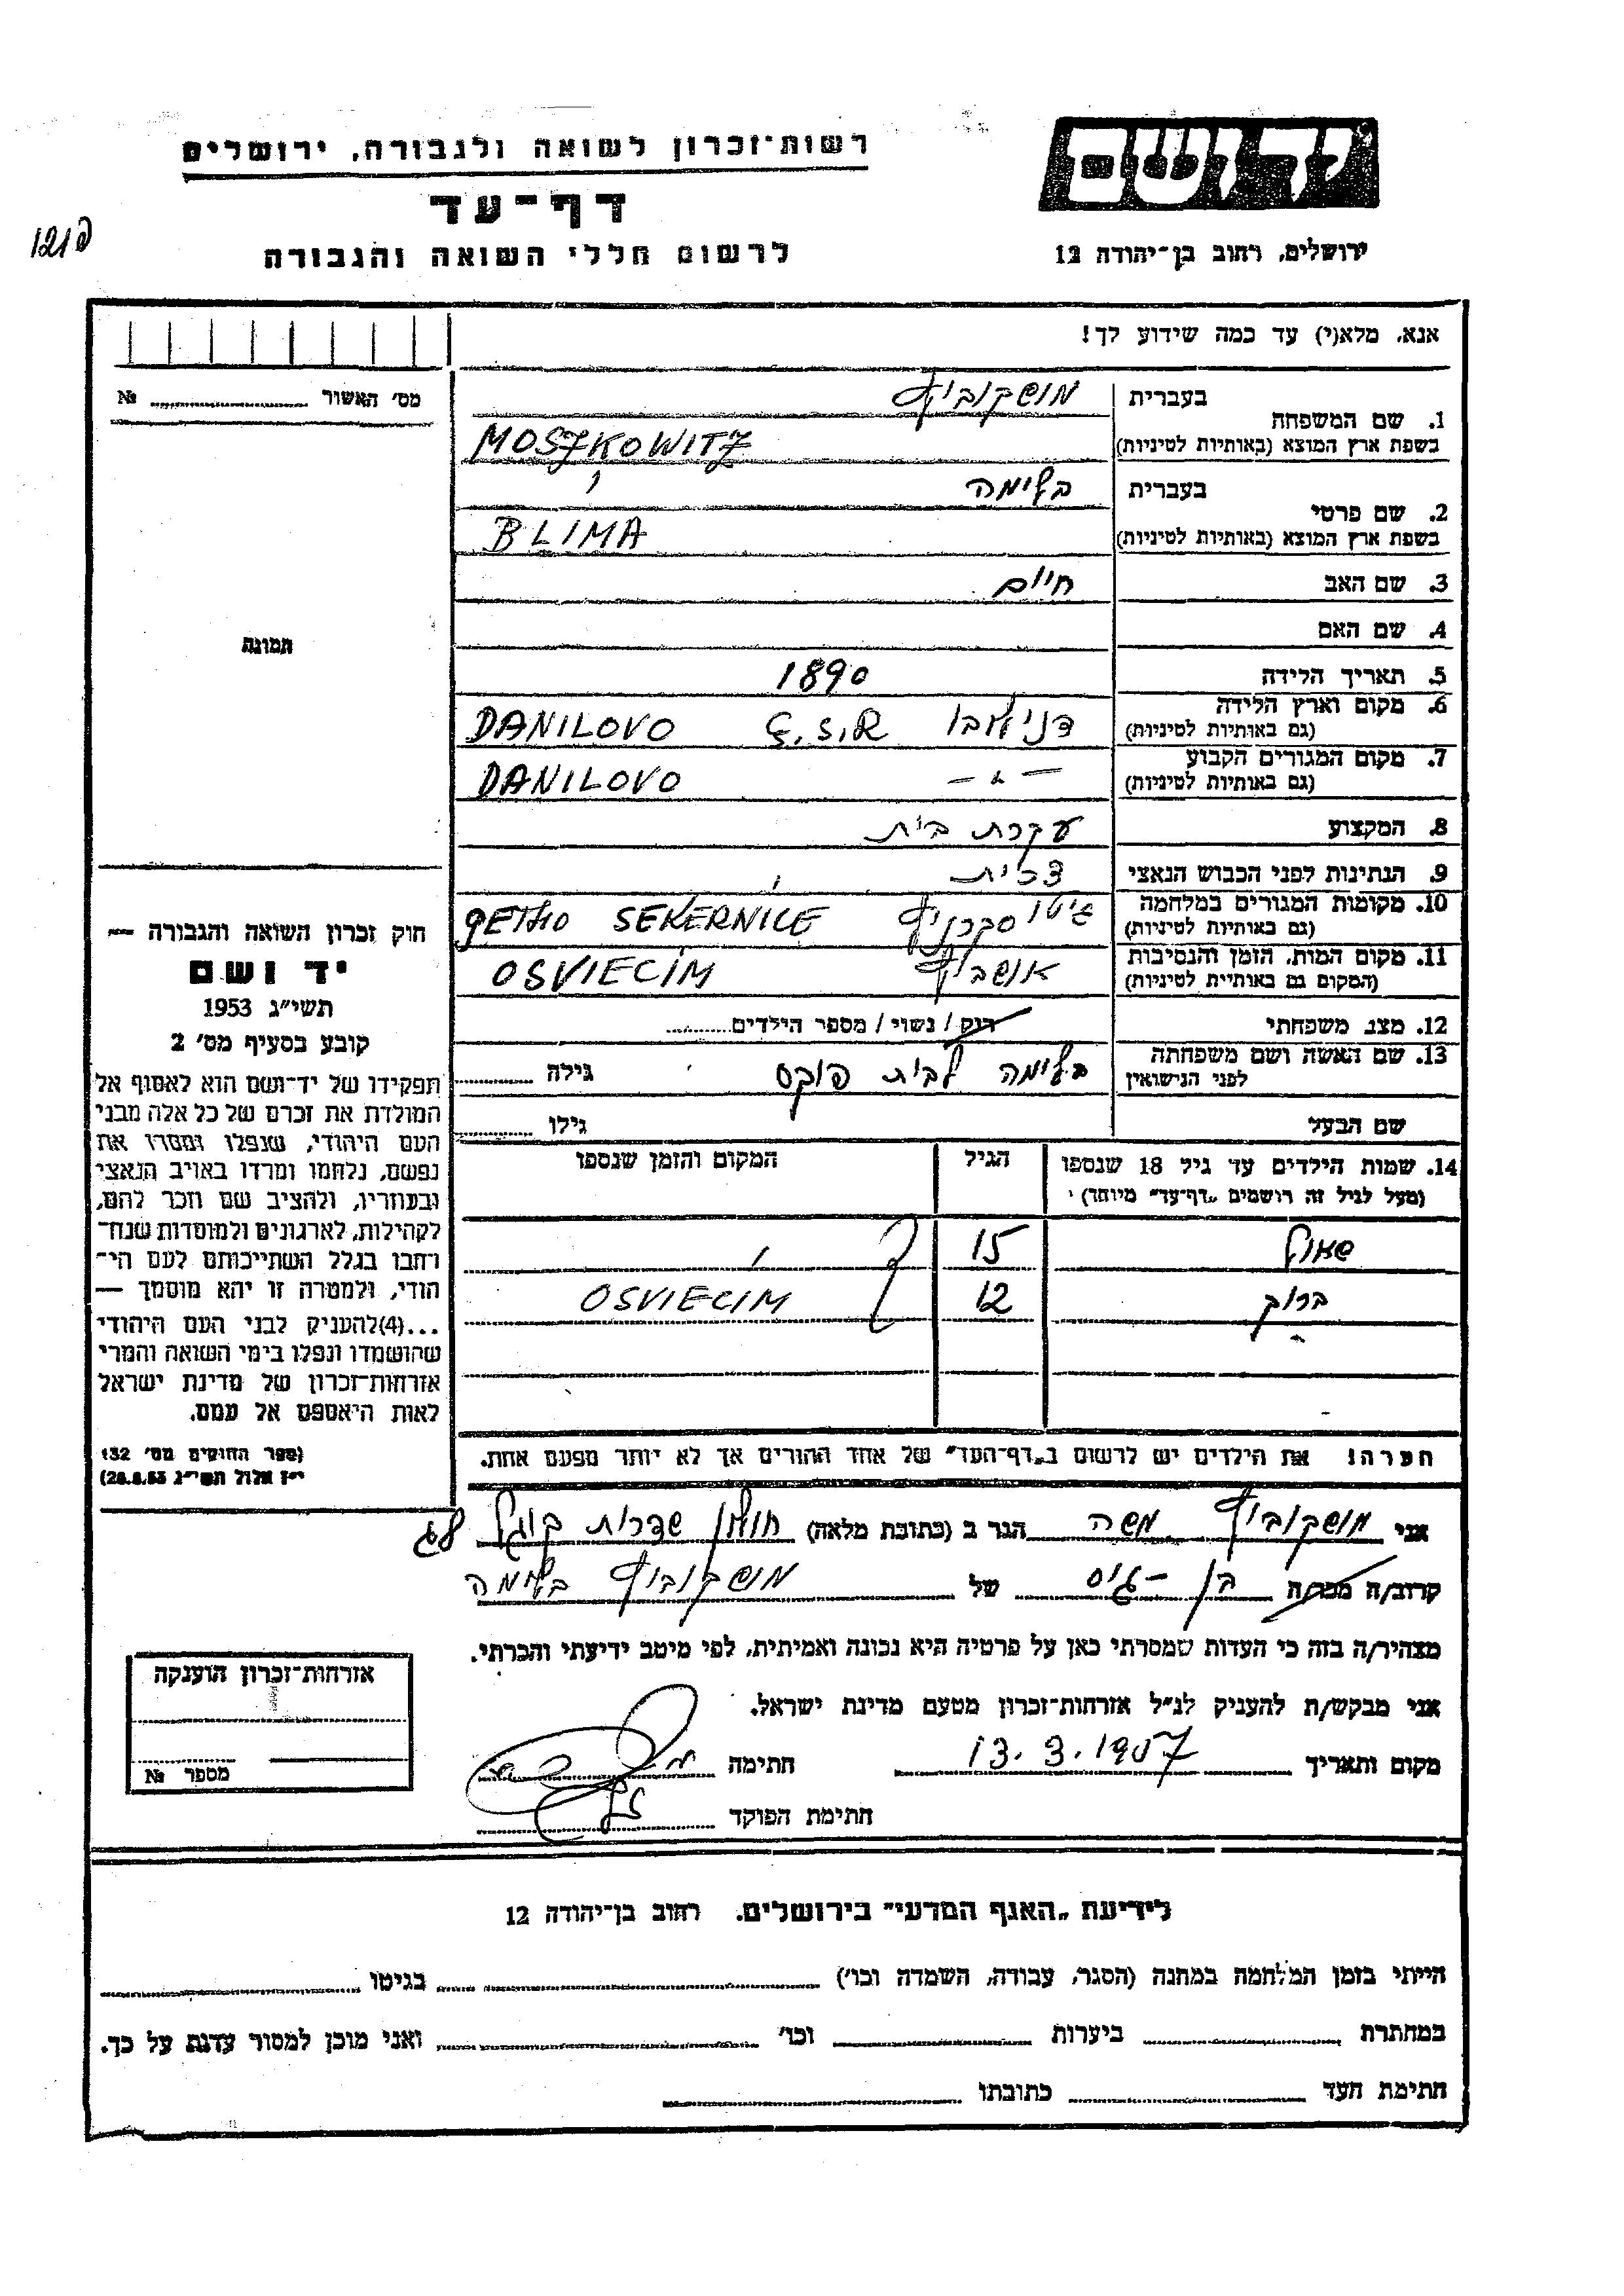 יד ושם
ירושלים, רחוב בן־יהודה 12
רשות־זכרון לשואה ולגבורה, ירושלים
דף־עד
לרשום חללי השואה והגבורה
אנא, מלא(י) עד כמה שידוע לך!
מס׳ האשור № 
1. שם המשפחה בעברית מושקוביץ
בשפת ארץ המוצא (באותיות לטיניות) MOSZKOWITZ
2. שם פרטי בעברית בלימה
בשפת ארץ המוצא (באותיות לטיניות) BLIMA
3. שם האב חיים
4. שם האם
תמונה
5. תאריך הלידה 1890
6. מקום וארץ הלידה דנילובו Č.S.R DANILOVO
(גם באותיות לטיניות)
7. מקום המגורים הקבוע — " — DANILOVO
(גם באותיות לטיניות)
8. המקצוע עקרת בית
9. הנתינות לפני הכבוש הנאצי צ׳כית
10. מקומות המגורים במלחמה גיטו סקרניץ GETHO SEKERNICE
(גם באותיות לטיניות)
11. מקום המות, הזמן והנסיבות אושביץ OSVIECIM
(המקום גם באותיית לטיניות)
12. מצב משפחתי רוק / נשוי / מספר הילדים
13. שם האשה ושם משפחתה בלימה לבית פוקס גילה
לפני הנישואין
שם הבעל גילו
14. שמות הילדים עד גיל 18 שנספו הגיל המקום והזמן שנספו
(מעל לגיל זה רושמים „דף־עד״ מיוחד)
שאול 15
ברוך 12 OSVIECIM
הערה! את הילדים יש לרשום ב„דף־העד״ של אחד ההורים אך לא יותר מפעם אחת.
חוק זכרון השואה והגבורה —
יד ושם
תשי״ג 1953
קובע בסעיף מס׳ 2
תפקידו של יד־ושם הוא לאסוף אל
המולדת את זכרם של כל אלה מבני
העם היהודי, שנפלו ומסרו את
נפשם, נלחמו ומרדו באויב הנאצי
ובעוזריו, ולהציב שם וזכר להם,
לקהילות, לארגונים ולמוסדות שנח־
רחבו בגלל השתייכותם לעם הי־
הודי, ולמטרה זו יהא מוסמך —
...(4)להעניק לבני העם היהודי
שהושמדו ונפלו בימי השואה והמרי
אזרחות־זכרון של מדינת ישראל
לאות היאספם אל עמם.
(ספר החוקים מס׳ 132
י״ז אלול תשי״ג 28.8.53)
אני מושקוביץ משה הגר ב (כתובת מלאה) חולון שדרות קוגל
קרוב/ה מכר/ה בן - גיס של מושקוביץ בלימה
מצהיר/ה בזה כי העדות שמסרתי כאן על פרטיה היא נכונה ואמיתית, לפי מיטב ידיעתי והכרתי.
אני מבקש/ת להעניק לנ״ל אזרחות־זכרון מטעם מדינת ישראל.
מקום ותאריך 13.3.1957 חתימה
חתימת הפוקד
אזרחות־זכרון הוענקה
מספר №
לידיעת „האגף המדעי״ בירושלים, רחוב בן־יהודה 12
הייתי בזמן המלחמה במחנה (הסגר, עבודה, השמדה וכו׳) בגיטו
במחתרת ביערות וכו׳ ואני מוכן למסור עדות על כך.
חתימת העד כתובתו